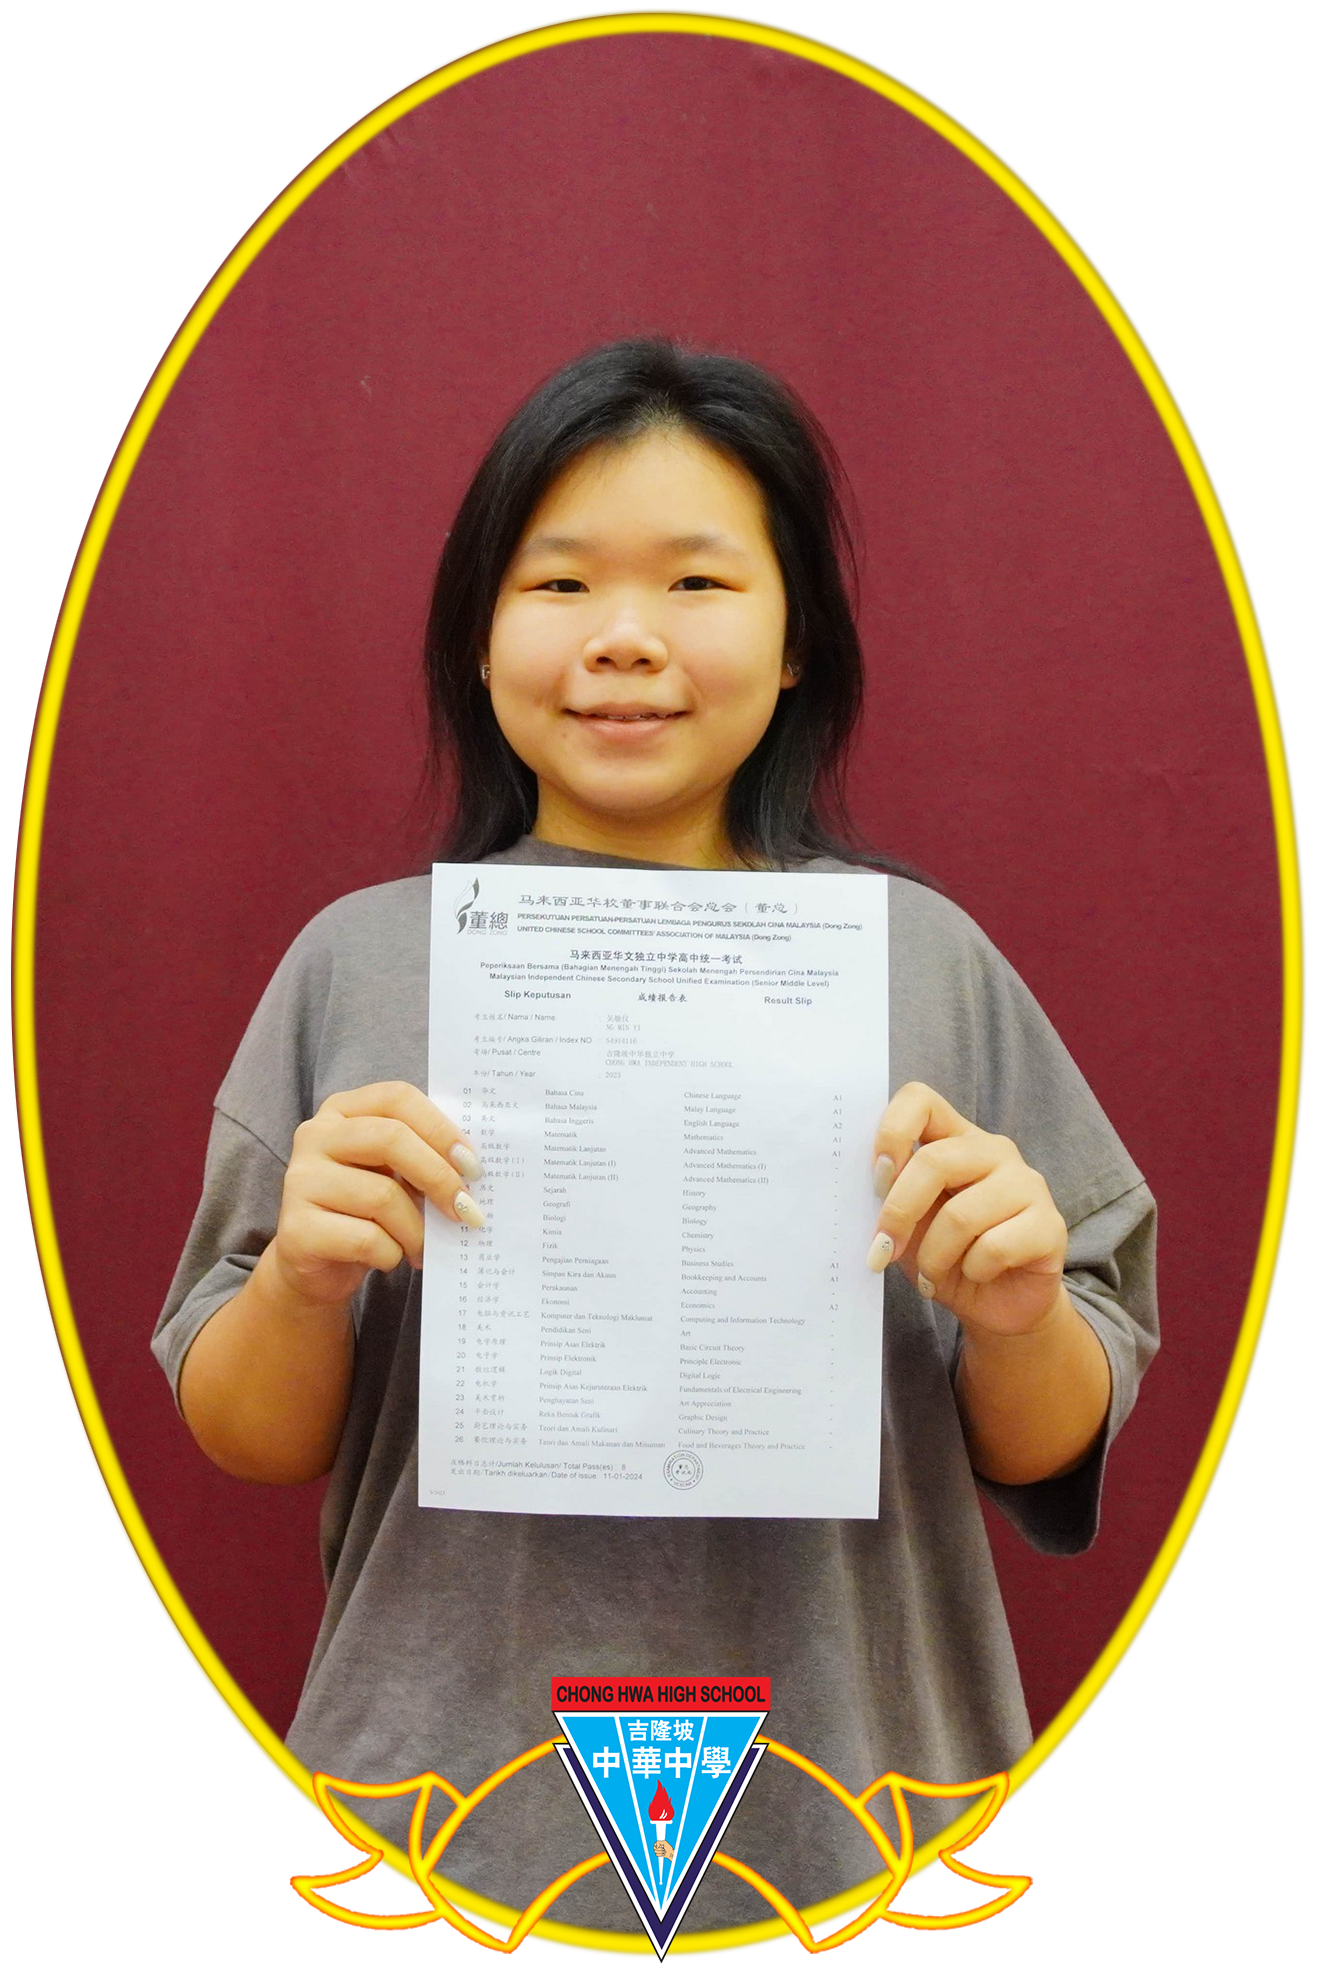 董總
DONG ZONG
马来西亚华校董事联合会总会（董总）
PERSEKUTUAN PERSATUAN-PERSATUAN LEMBAGA PENGURUS SEKOLAH CINA MALAYSIA (Dong Zong)
UNITED CHINESE SCHOOL COMMITTEES' ASSOCIATION OF MALAYSIA (Dong Zong)
马来西亚华文独立中学高中统一考试
Peperiksaan Bersama (Bahagian Menengah Tinggi) Sekolah Menengah Persendirian Cina Malaysia
Malaysian Independent Chinese Secondary School Unified Examination (Senior Middle Level)
Slip Keputusan 成绩报告表 Result Slip
考生姓名/ Nama / Name :
NG MIN YI
考生编号/ Angka Giliran / Index NO : 54914116
考场/ Pusat / Centre : 吉隆坡中华独立中学
CHONG HWA INDEPENDENT HIGH SCHOOL
年份/ Tahun / Year : 2023
01 华文 Bahasa Cina Chinese Language A1
02 马来西亚文 Bahasa Malaysia Malay Language A1
03 英文 Bahasa Inggeris English Language A2
04 数学 Matematik Mathematics A1
高级数学 Matematik Lanjutan Advanced Mathematics A1
高级数学(I) Matematik Lanjutan (I) Advanced Mathematics (I) -
高级数学(II) Matematik Lanjutan (II) Advanced Mathematics (II) -
历史 Sejarah History -
地理 Geografi Geography -
Biologi Biology -
11 化学 Kimia Chemistry -
12 物理 Fizik Physics -
13 商业学 Pengajian Perniagaan Business Studies A1
14 簿记与会计 Simpan Kira dan Akaun Bookkeeping and Accounts A1
15 会计学 Perakaunan Accounting -
16 经济学 Ekonomi Economics A2
17 电脑与资讯工艺 Komputer dan Teknologi Maklumat Computing and Information Technology -
18 美术 Pendidikan Seni Art -
19 电学原理 Prinsip Asas Elektrik Basic Circuit Theory -
20 电子学 Prinsip Elektronik Principle Electronic -
21 数位逻辑 Logik Digital Digital Logic -
22 电机学 Prinsip Asas Kejuruteraan Elektrik Fundamentals of Electrical Engineering -
23 美术赏析 Penghayatan Seni Art Appreciation -
24 平面设计 Reka Bentuk Grafik Graphic Design -
25 厨艺理论与实务 Teori dan Amali Kulinari Culinary Theory and Practice -
26 餐饮理论与实务 Teori dan Amali Makanan dan Minuman Food and Beverages Theory and Practice -
及格科目总计/Jumlah Kelulusan/ Total Pass(es) : 8
发出日期/Tarikh dikeluarkan/ Date of issue : 11-01-2024
CHONG HWA HIGH SCHOOL
吉隆坡
中華中學